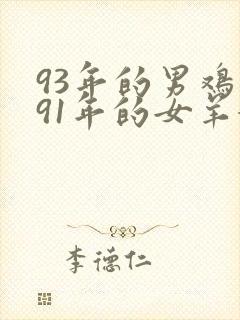 93年的男鸡
91年的女羊
李德仁